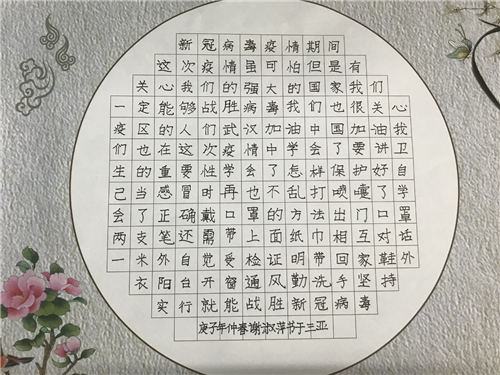 新冠病毒疫情期间
这次疫情虽可怕但是有
关心我们的强大的国家我们
一定能够战胜病毒我们也很关心
疫区的人们武汉加油中国加油我
们也在这次疫情中学会了要讲卫
生的重要性学会了怎样保护好自
己当感冒时再也不乱打喷嚏了学
会了正确戴口罩的方法出门口罩
两支笔还需带上面纸巾相互对话
一米外自觉受检证明带回家鞋外
衣阳台开窗通风勤洗手坚持
实行就能战胜新冠病毒
庚子年仲春谢萍书于三亚